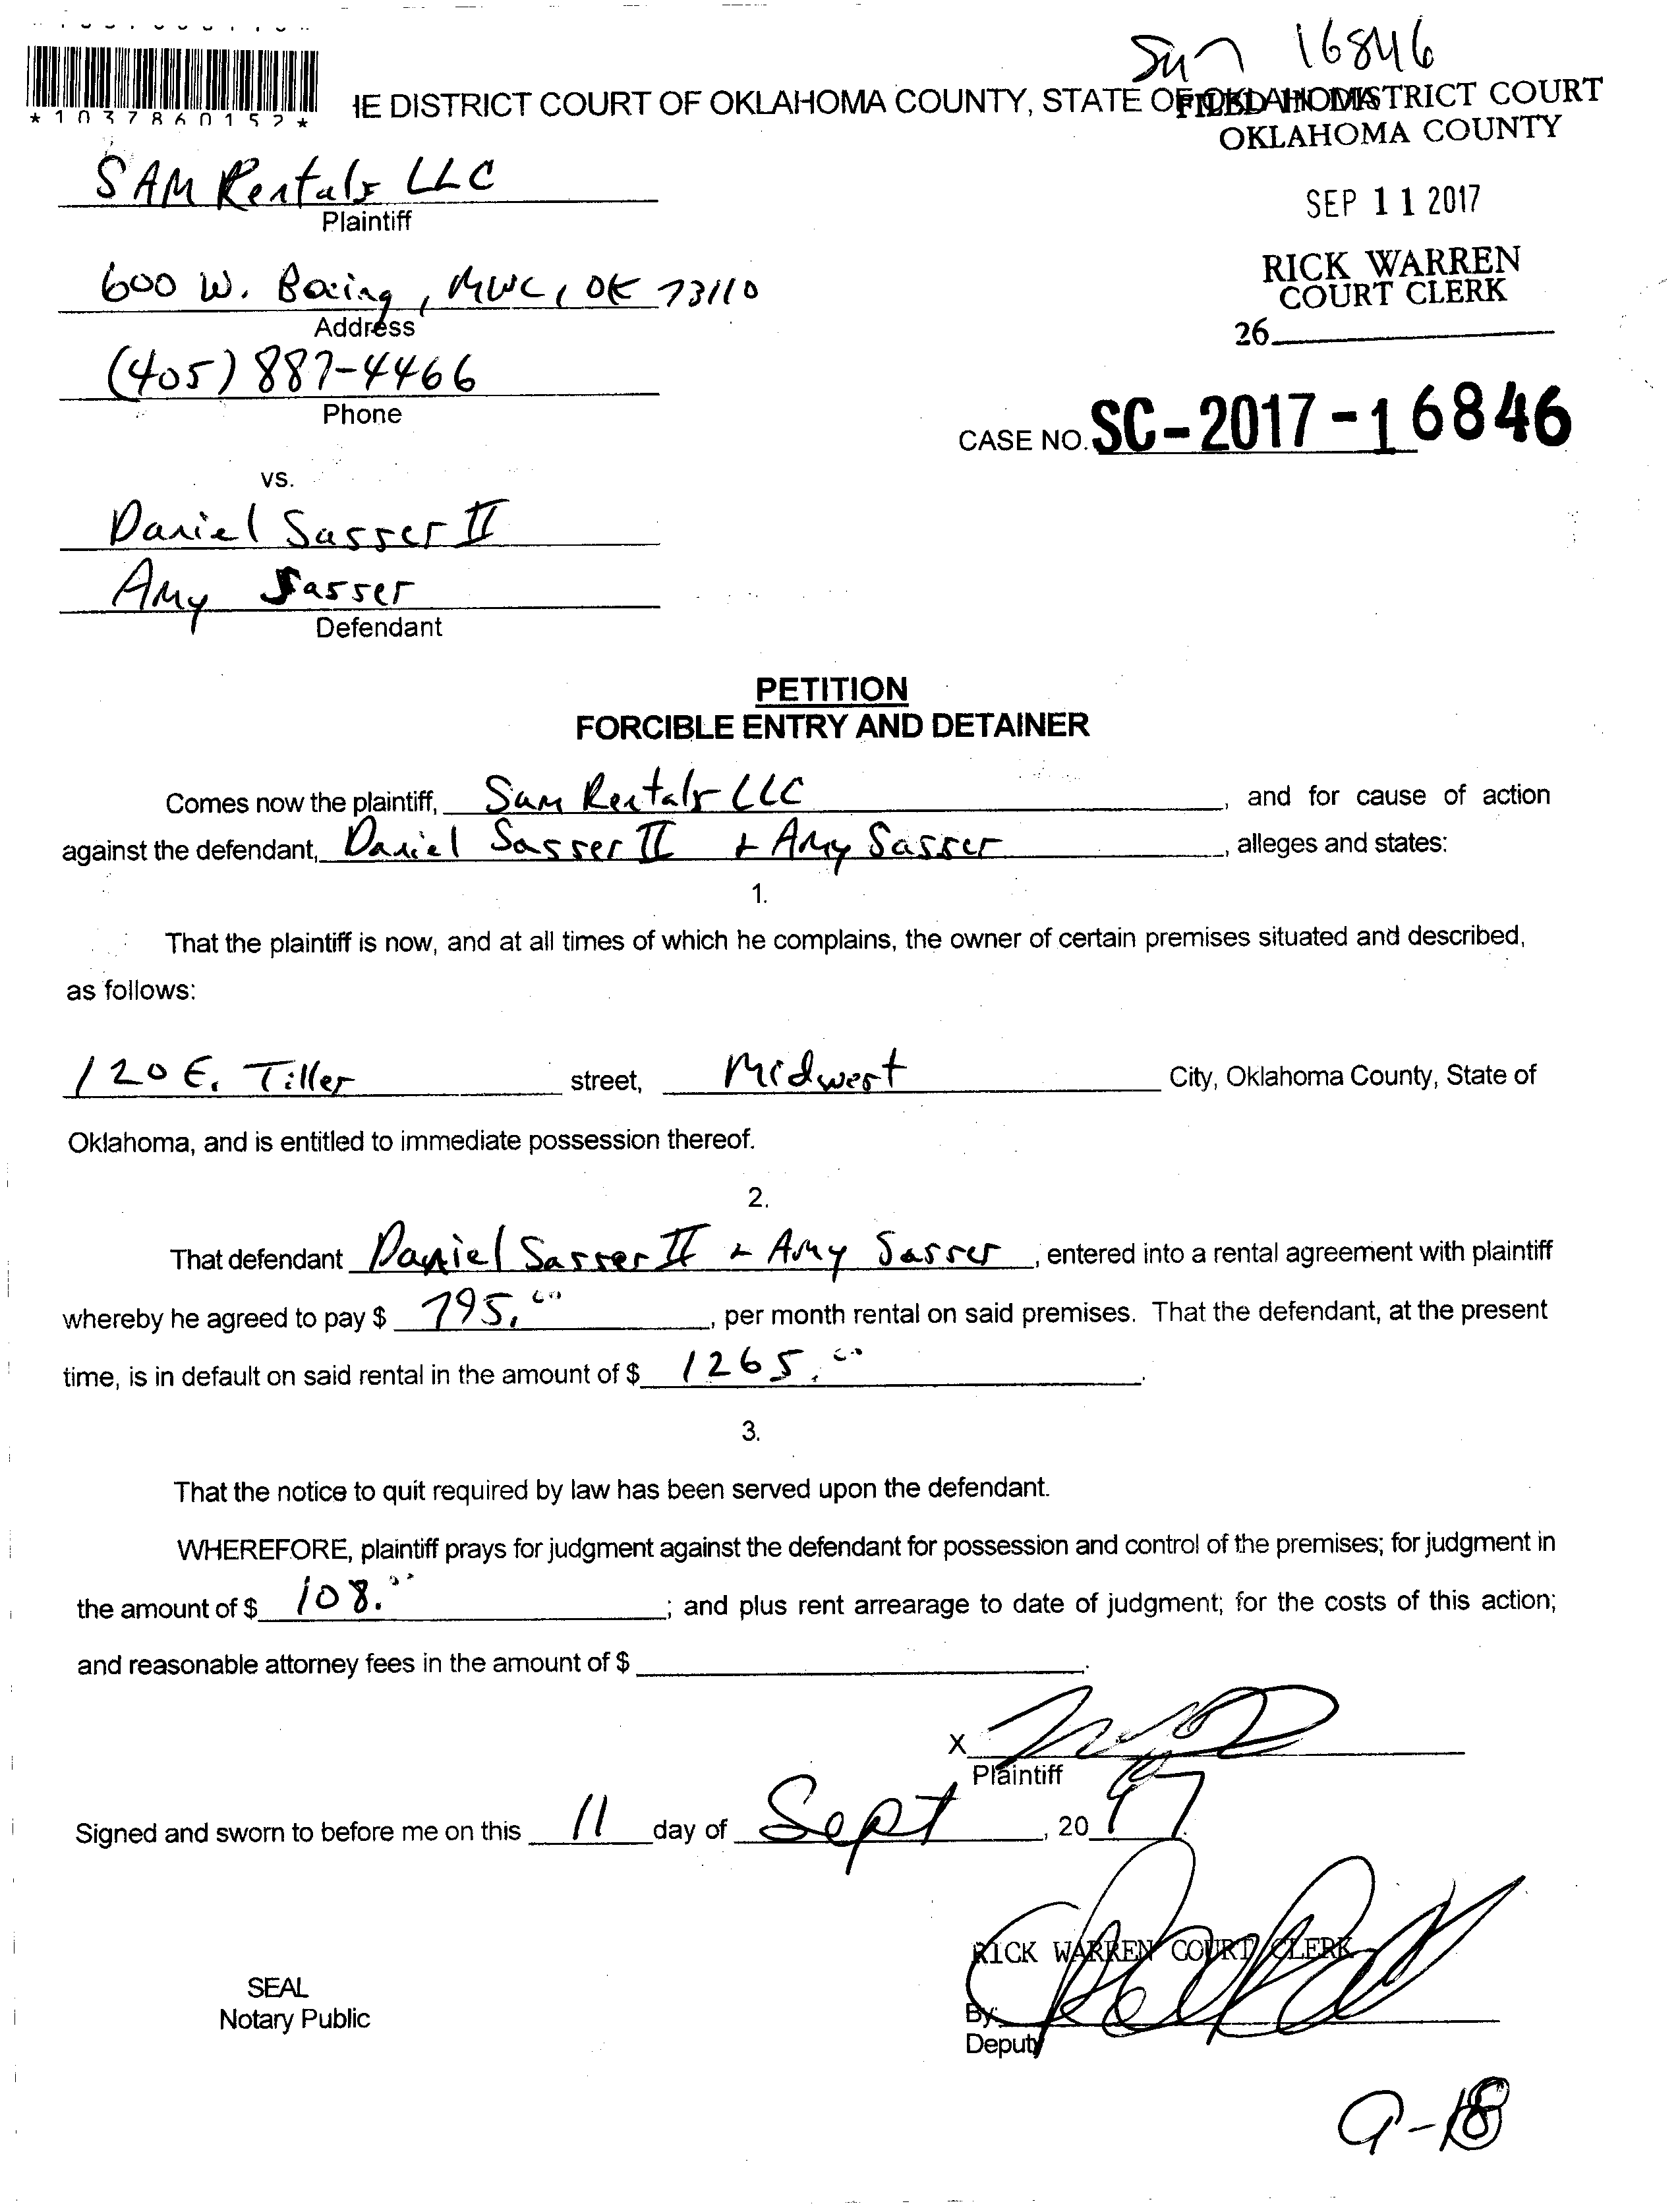 Sun 16846
*1037860152*
IE DISTRICT COURT OF OKLAHOMA COUNTY, STATE OF OKLAHOMA
FILED IN DISTRICT COURT
OKLAHOMA COUNTY
SAM Rentals LLC
Plaintiff
SEP 11 2017
600 W. Boeing, MWC, OK 73110
Address
RICK WARREN
COURT CLERK
26
(405) 887-4466
Phone
CASE NO. SC-2017-16846
vs.
Daniel Sasser II
Amy Sasser
Defendant
PETITION
FORCIBLE ENTRY AND DETAINER
Comes now the plaintiff, Sam Rentals LLC, and for cause of action
against the defendant, Daniel Sasser II + Amy Sasser, alleges and states:
1.
That the plaintiff is now, and at all times of which he complains, the owner of certain premises situated and described,
as follows:
120 E. Tiller street, Midwest City, Oklahoma County, State of
Oklahoma, and is entitled to immediate possession thereof.
2.
That defendant Daniel Sasser II + Amy Sasser, entered into a rental agreement with plaintiff
whereby he agreed to pay $ 795.00, per month rental on said premises. That the defendant, at the present
time, is in default on said rental in the amount of $ 1265.00.
3.
That the notice to quit required by law has been served upon the defendant.
WHEREFORE, plaintiff prays for judgment against the defendant for possession and control of the premises; for judgment in
the amount of $ 108.00; and plus rent arrearage to date of judgment; for the costs of this action;
and reasonable attorney fees in the amount of $
X
Plaintiff
Signed and sworn to before me on this 11 day of Sept, 2017
RICK WARREN COURT CLERK
SEAL
Notary Public
By:
Deputy
9-18